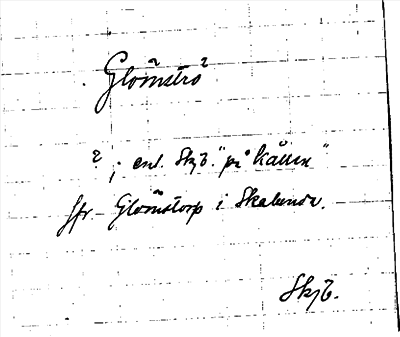 Glömstro?
? ; enl. Skjb. "på Kållen"
Jfr Glömstorp i Skalunda.
Skjb.